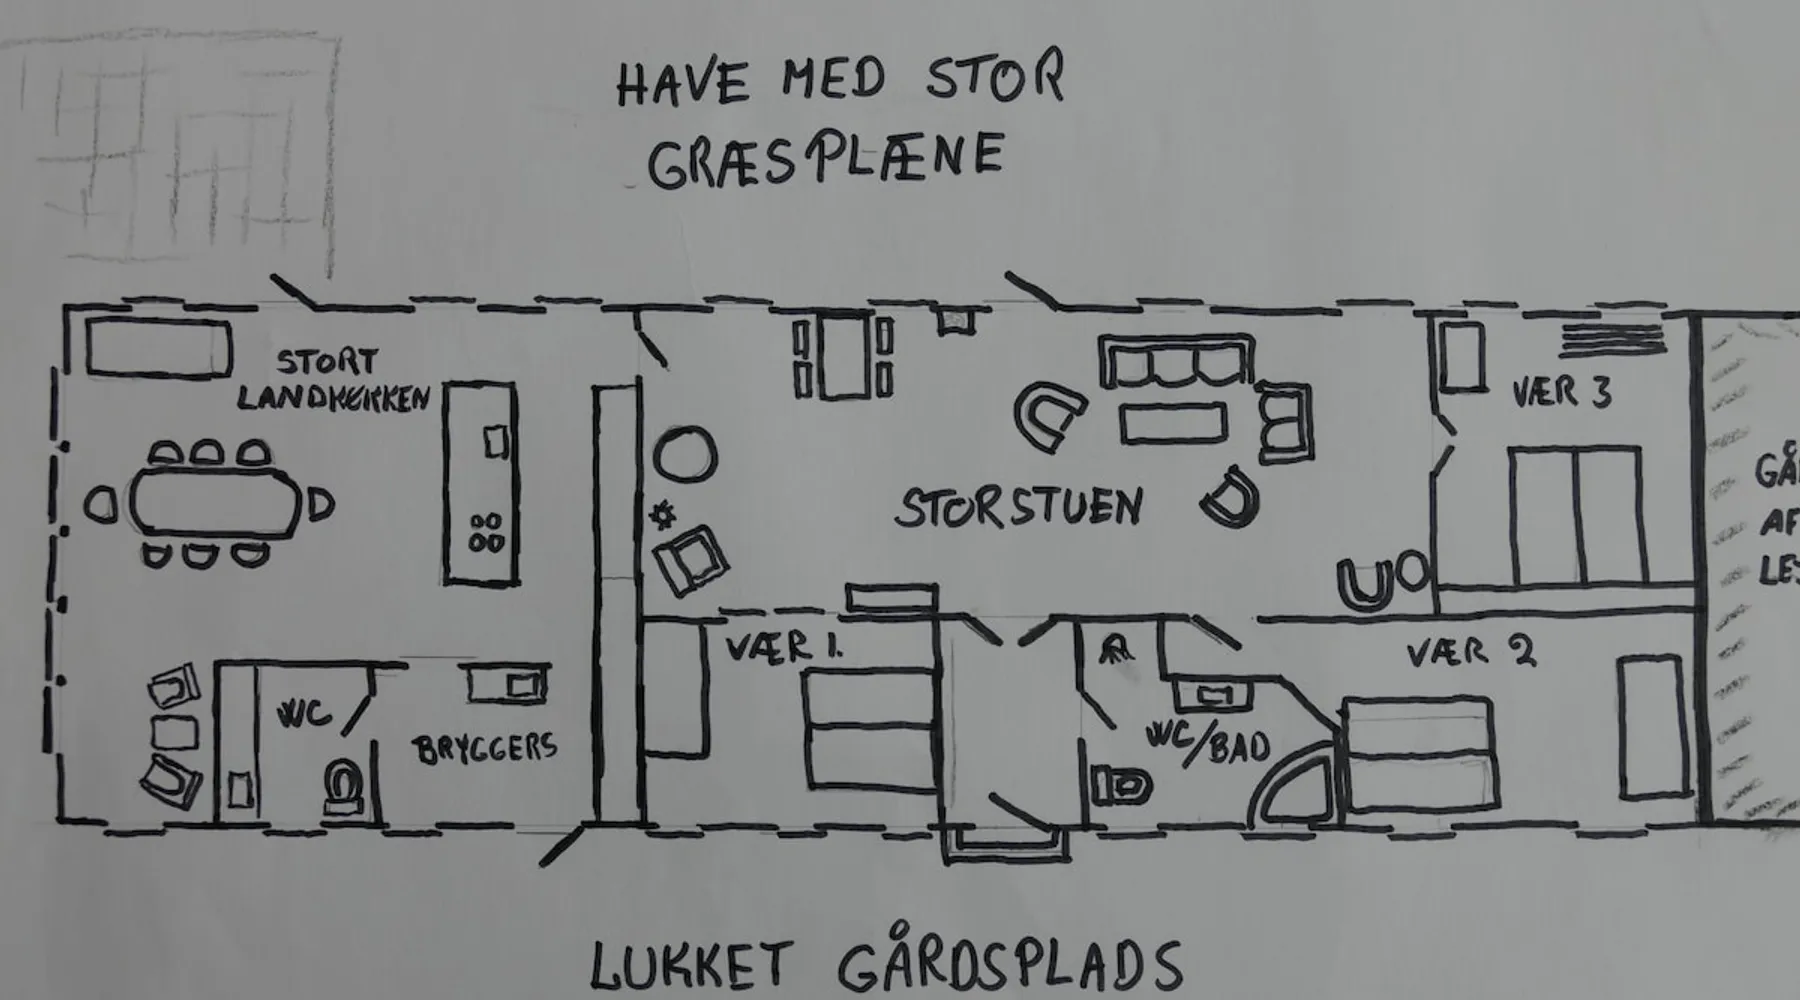 HAVE MED STOR
GRÆSPLÆNE
STORT
LANDKØKKEN
VÆR 3
STORSTUEN
VÆR 1.
VÆR 2
WC
BRYGGERS
WC/BAD
LUKKET GÅRDSPLADS